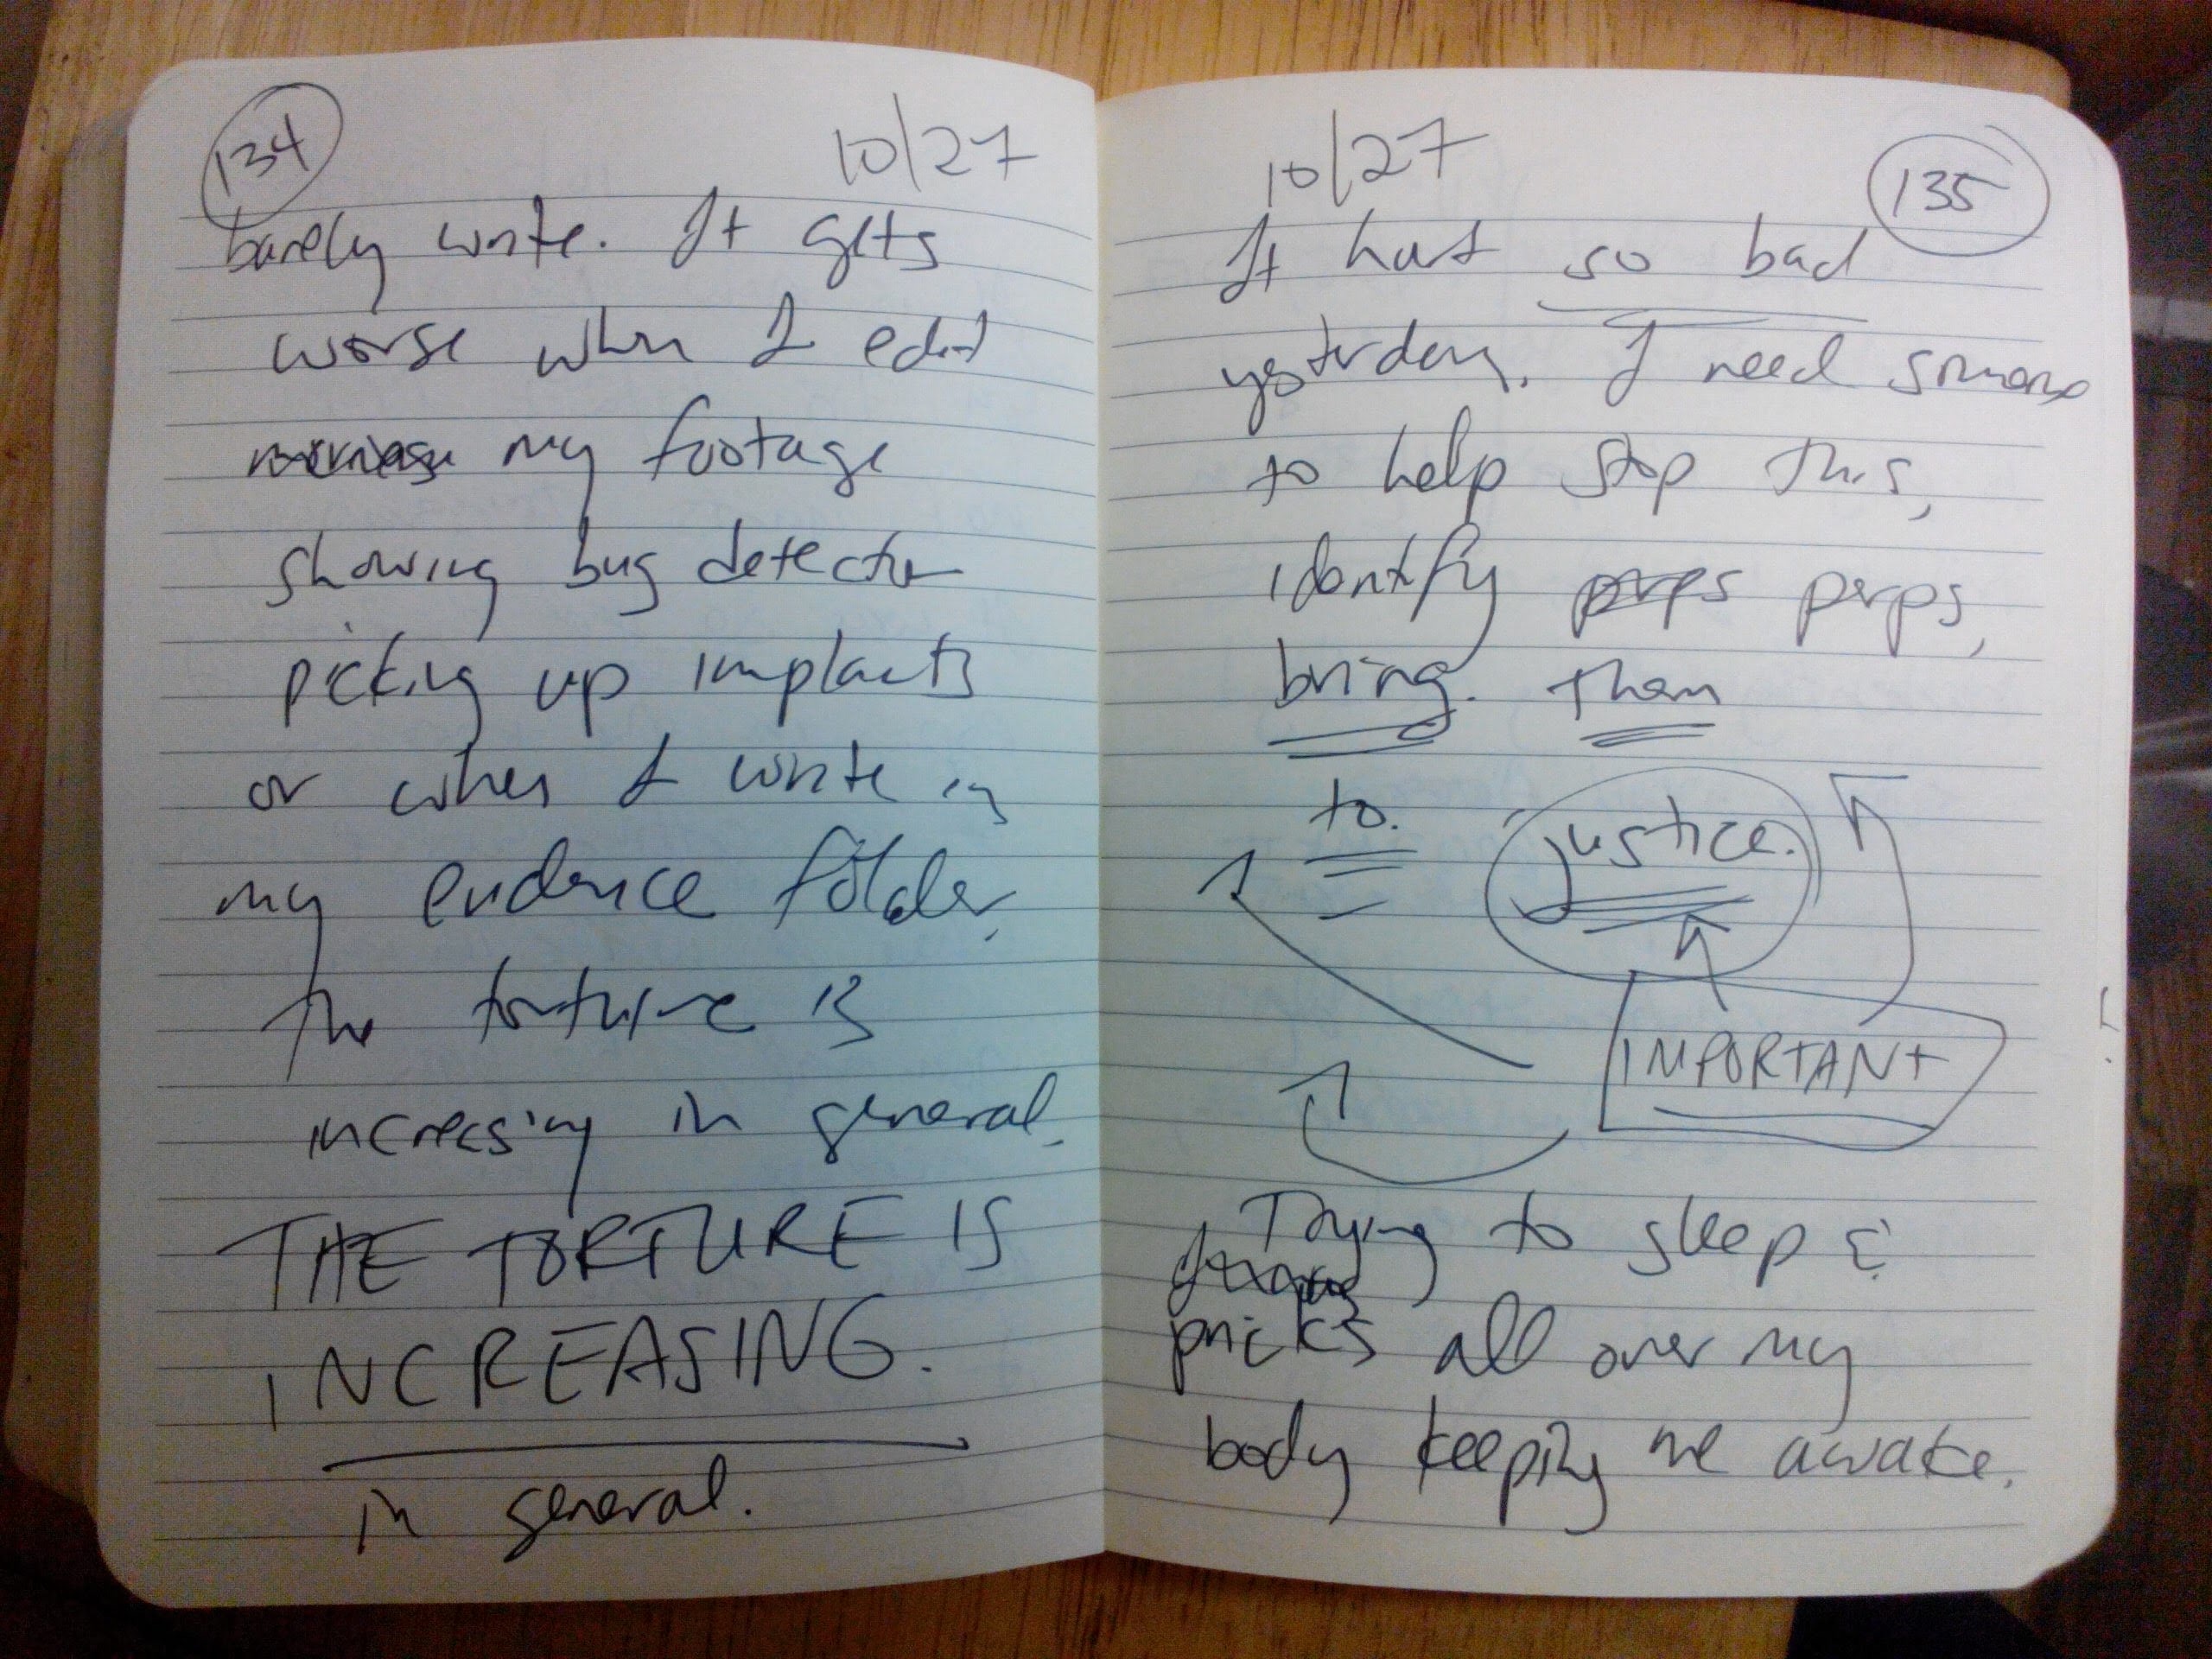 134
10/27
barely write. It gets
worse when I edit
my footage
showing bug detector
picking up implants
or when I write in
my evidence folder.
The torture is
increasing in general.
THE TORTURE IS
INCREASING.
in general.
10/27
135
It hurt so bad
yesterday. I need someone
to help stop this,
identify perps perps,
bring them
to justice.
IMPORTANT
Trying to sleep &
pricks all over my
body keeping me awake.